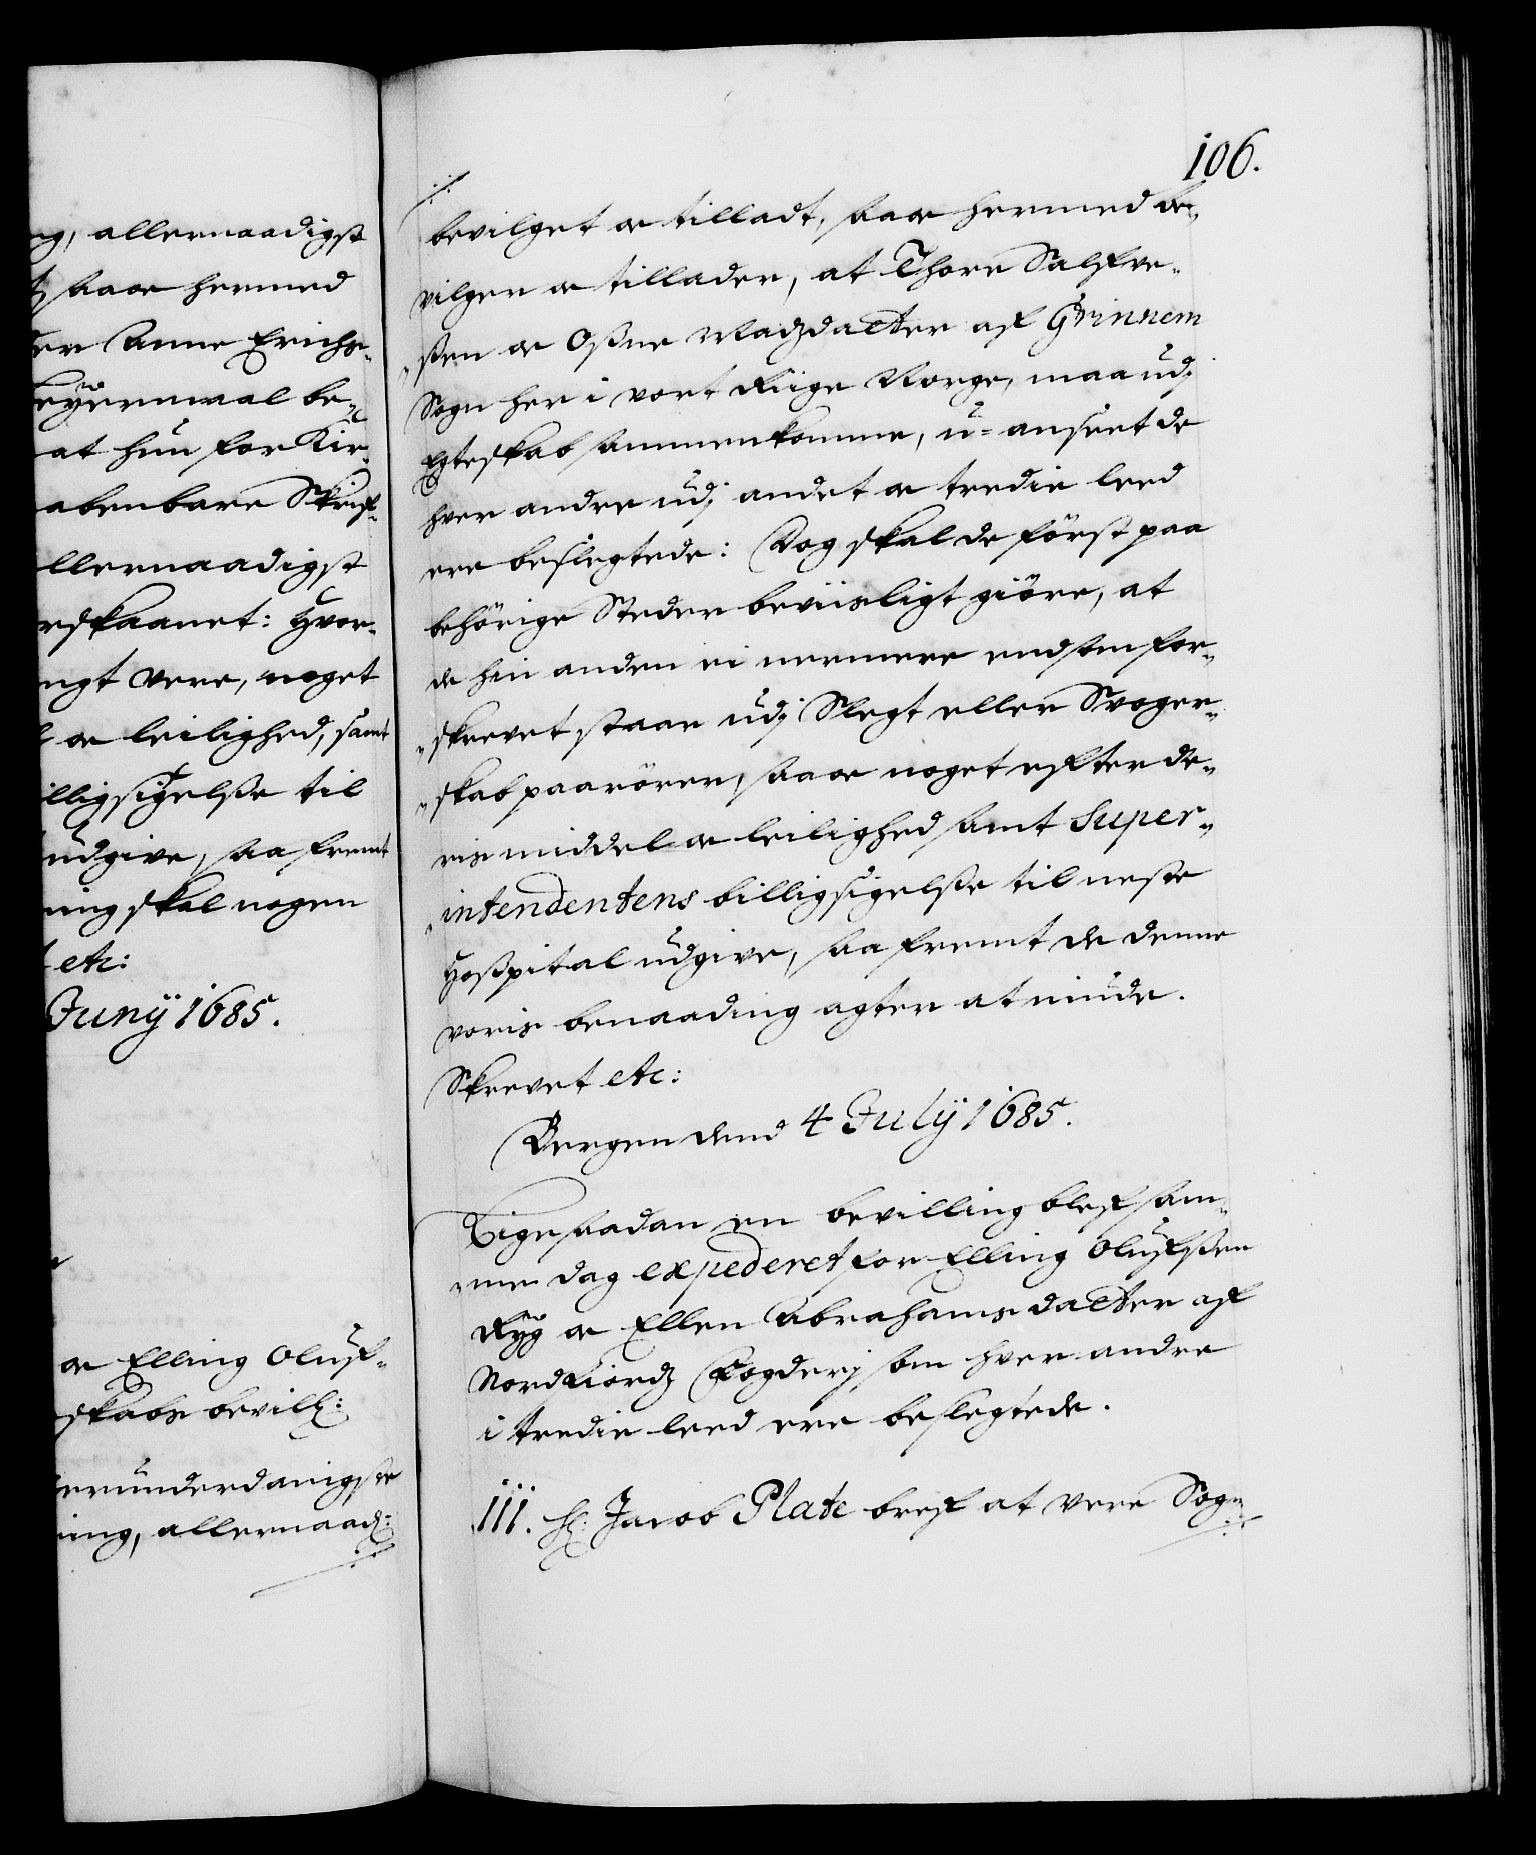 ng, allernaadigst
saa oc hermed
er Anne Erichs-
eyermaal be-
at hun for Kir-
abenbare Skrif-
llernaadigst
rskaanet: Hvor-
ngt vere, noget
oc leilighed, samt
illigsigelse til
udgive, saa fremt
ning skal nogen
etc:
Juny 1685.
oc Elling Oluf-
skabs bevill:
erunderdanigste
ning, allernaad:
106.
bevilget oc tilladt, saa oc hermed be-
vilger oc tillader, at Thore Salfve-
sen oc Osne Madzdatter af Grinnem
Sogn her i vort Riige Norge, maa udj
Egteskab sammenkomme, u-anseet de
hver andre udj andet oc tredie leed
ere beslegtede: Dog skal de först paa
behörige Steder beviisligt giöre, at
de hin anden ei nermere end som for-
skrevet staar udj Slegt eller Svoger-
skab paarörer, saa oc noget efter de-
ris middel oc leilighed samt Super-
intendentens billigsigelse til neste
Hospital udgive, saa fremt de denne
voris benaading agter at niude.
Skrevet etc:
Bergen dend 4 July 1685.
Lige saadan en bevilling blef sam-
me dag expederet for Elling Olufsen
Ryg oc Ellen Abrahams datter af
Nordfiordz Fogderj som hver andre
i tredie leed ere beslegtede.
111. Hr: Jacob Plate bref at vere Sogne